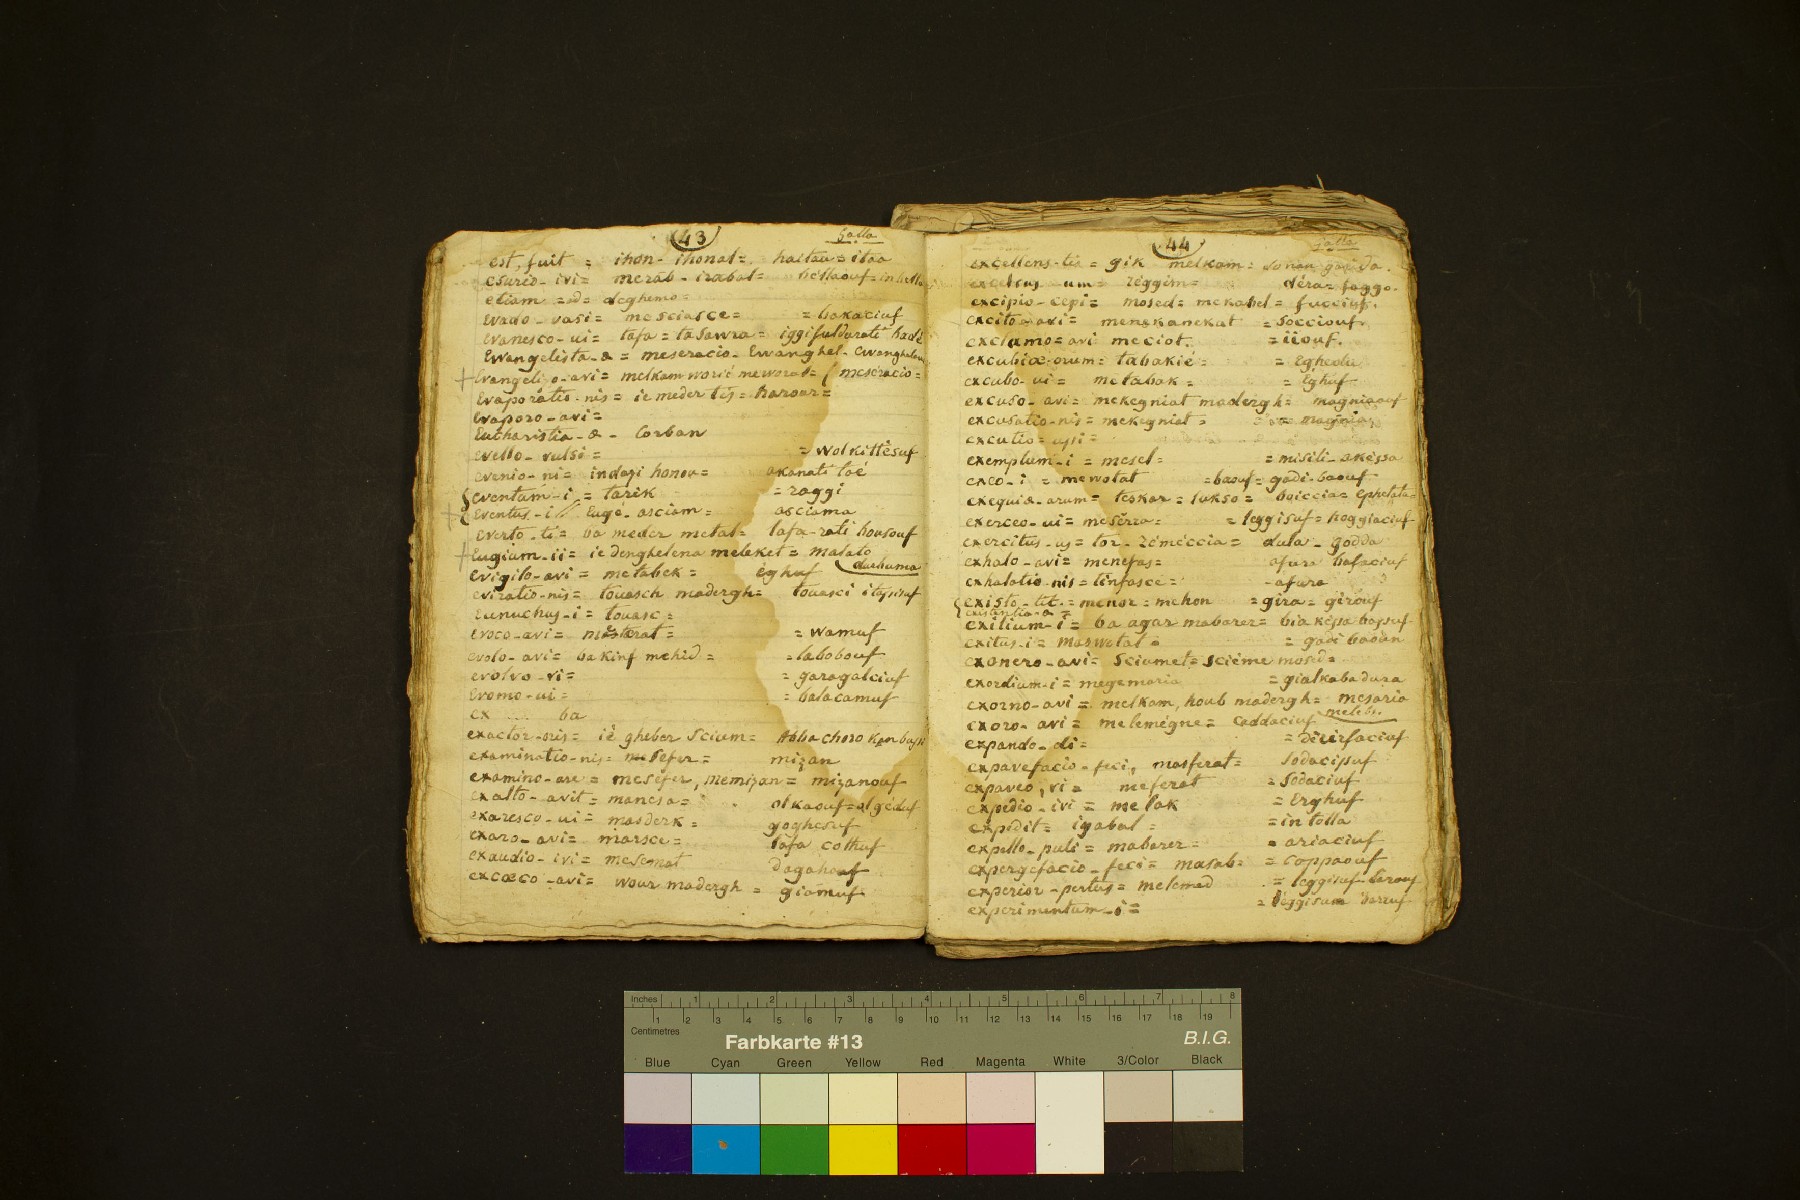 43
Galla
est, fuit = ihon - ihonal = haltaa = itaa
esurio - ivi = merab - irabal = bellaouf =
etiam = ad = deghemo =
Evado - vasi = mesciasce = = bakaciuf
Evanesco - ui = tafa = tasawra = iggifuldurati
Evangelista - æ = meseracio - Ewanghel -
+ Evangelizo - avi = melkam worié meworat = ( meseracio =
Evaporatio - nis = ie meder tis = haroar =
Evaporo - avi =
Eucharistia - æ - Corban
evello - vulsi = = wolkittésuf
evenio - ni = indazi honou = akanati taé
eventum - i = tarik = raggi
+ Eventus - i // Euge - asciam = asciama
Everto - ti = ba meder metal = lafa - rati housouf
+ Eugium - ii = ie denghelena meleket = malato
duchuma
Evigilo - avi = metabek = eghuf
eviratio - nis = touasch madergh = touasci
Eunuchus - i = touasc =
evoco - avi = = wamuf
evolo - avi = ba kinf mehid = = labobouf
evolvo - vi = = garagalciuf
Evomo - ui = = balacamuf
ex .... ba
exactor - oris = ié gheber scium = Abba choro
examinatio - nis = mesefer = mizan
examino - are = mesefer, memizan = mizanouf
exalto - avit = manesa = olkaouf = olgéduf
exaresco - ui = maderk = goghesuf
exaro - avi = marsce = lafa cothuf
exaudio - ivi = mesemat dagahouf
excœco - avi = wour madergh = giamuf
44
Galla
excellens - tia = gik melkam =
excelsus - um = reggim = déra = foggo.
excipio - cepi = mosed = mekabel = fucciuf.
excito - avi = menekanekat = socciouf
exclamo = avi meciot. = iiouf.
excubiæ - orum = tabakié = = Eghedu
excubo - ui = metabak = = Eghuf
excuso - avi = mekegniat madergh = magniaouf
excusatio - nis = mekegniat =
excutio = ussi =
exemplum - i = mesel = = misili - akessa
exeo - i = mewotat = baouf = gadi - baouf
exequiæ - arum = teskar = lukso = boiccia =
exerceo - ui = meserra = = leggisuf = hoggiaciuf
exercitus - us = tor - zemeccia = dula - godda
exhalo - avi = menefas = afura bafaciuf
exhalatio - nis = tinfasce = - afura
existo - tit. = menor = mehon = gira = girouf
existentia - æ =
exilium - i = ba agar mabarer = bia kessa
exitus - i = maswotat = = gadi baouu
exonero - avi = sciumet = sciéme
exordium - i = megemaria = gialkaba dura
exorno - avi = melkam, houb madergh = mesaria
exoro - avi = melemégne = caddaciuf
expando - di = = diirfaciuf
expavefacio - feci, masferat = sodacisuf
expaveo, vi = meferat = sodaciuf
expedio - ivi = melak = Erghuf
expedit = igabal = = in tolla
expello - puli = mabarer = = ariaciuf
expergefacio - feci = masab = = coppaouf
experior - pertus = melemed = leggisuf - barouf
experimentum - i = = leggisuu
Inches 1 2 3 4 5 6 7 8
1 2 3 4 5 6 7 8 9 10 11 12 13 14 15 16 17 18 19
Centimetres
Farbkarte #13 B.I.G.
Blue Cyan Green Yellow Red Magenta White 3/Color Black